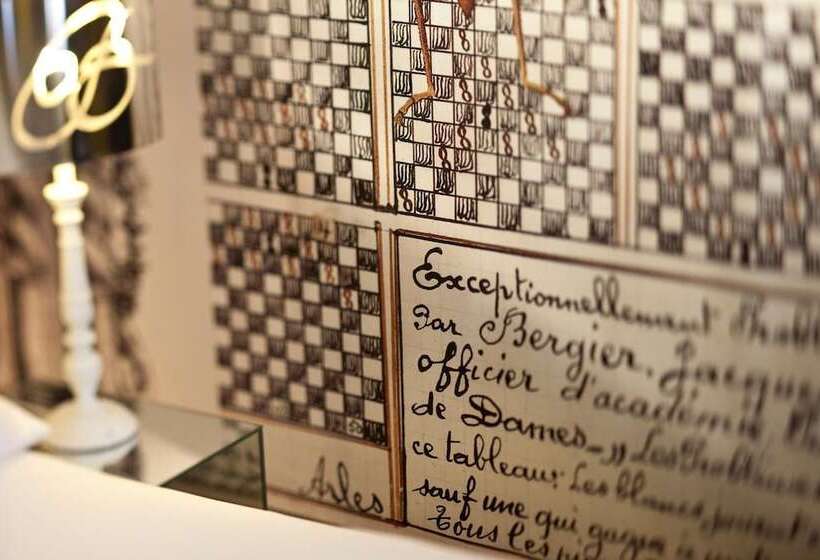 Exceptionnellement
Par Bergier. Jacques
officier d'académie
de Dames_,, Les Problèmes
ce tableau: Les blancs
sauf une qui gagne
Tous les
Arles